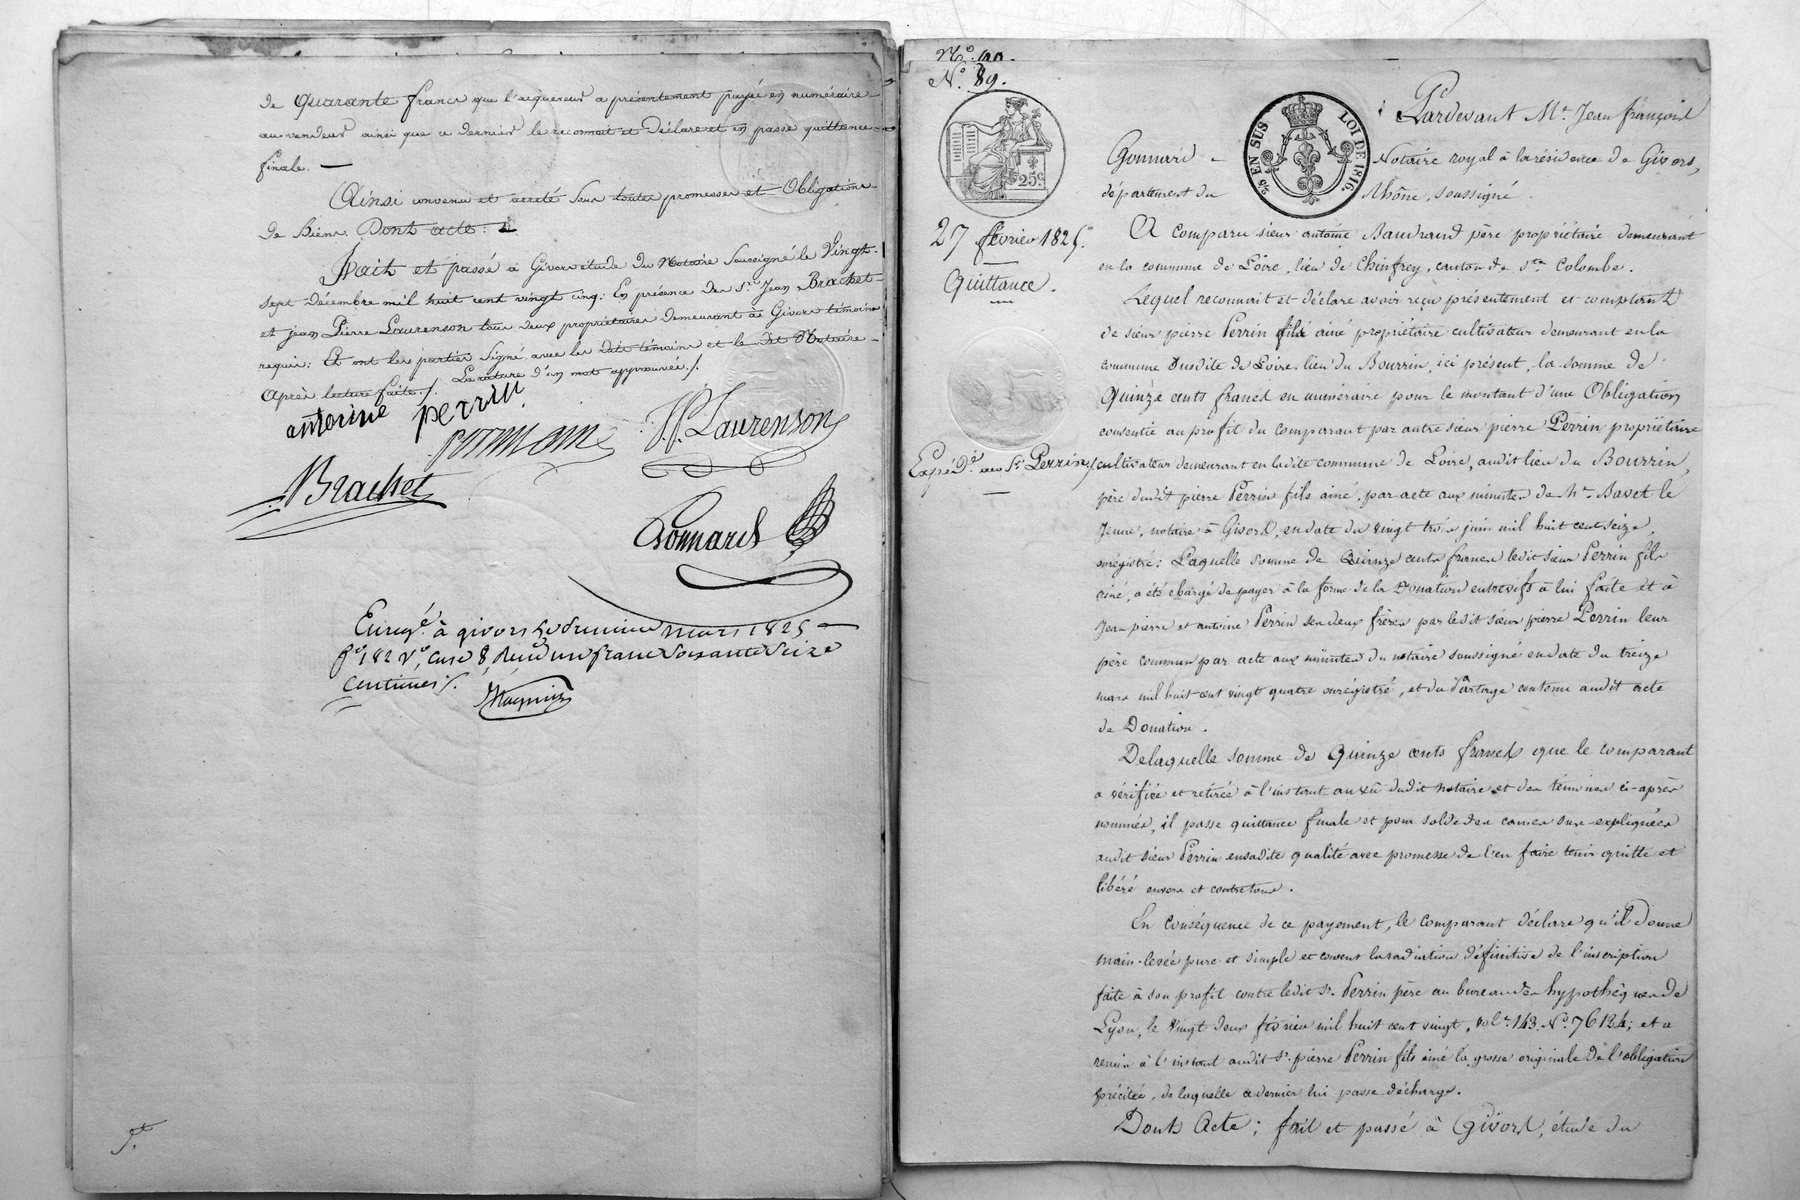 de quarante francs que l'acquereur a présentement payé en numéraire
au vendeur ainsi que ce dernier le reconnait et déclare et en passe quittance
finale. —
Ainsi convenu et arrêté sous toutes promesses et Obligations
de biens. Dont acte :
Fait et passé à Givors étude du Notaire Soussigné le Vingt-
sept décembre mil huit cent vingt cinq; En présence des Srs Jean Brachet
et jean Pierre Laurenson tous deux propriétaires demeurant à Givors témoins
requis; Et ont les parties Signé avec les dits témoins et le dit Notaire
Après lecture faite ./. La rature d'un mot approuvée ./.
antoine perrin
J.P. Laurenson
Brachet
Gonnard
Enregé. à givors le mars 1825 —
fo 182 Vo, case 8, Reçu un franc Soixante Seize
Centimes ./.
No. 90.
No. 89.
25c.
25 EN SUS LOI DE 1816.
27 février 1825.
Quittance.
Expédié. au Sr. Perrin
Pardevant Me. Jean françois
Gonnard - Notaire royal à la résidence de Givors,
département du Rhône, soussigné.
A comparu sieur antoine Baudrand père propriétaire demeurant
en la commune de Loire, lieu de Chinfrey, canton de Ste. Colombe.
Lequel reconnait et déclare avoir reçu présentement et comptant
de sieur pierre Perrin fils ainé propriétaire cultivateur demeurant en la
commune susdite de Loire, lieu du Bourrin, ici présent, la somme de
Quinze cents francs en numéraire pour le montant d'une Obligation
consentie au profit du comparant par autre sieur pierre Perrin propriétaire
cultivateur demeurant en ladite commune de Loire, audit lieu du Bourrin,
père dudit pierre Perrin fils ainé, par acte aux minutes de Me. Bavet le
Jeune, notaire à Givors, en date du vingt trois juin mil huit cent seize,
enrégistré; Laquelle somme de Quinze cents francs ledit sieur Perrin fils
ainé, a été chargé de payer à la forme de la Donation entrevifs à lui faite et à
Jean pierre et antoine Perrin ses deux frères par ledit sieur pierre Perrin leur
père commun par acte aux minutes du notaire soussigné en date du treize
mars mil huit cent vingt quatre enrégistré, et du Partage contenu audit acte
de Donation.
Delaquelle somme de Quinze cents francs que le comparant
a vérifiée et retirée à l'instant au vû dudit notaire et des témoins ci-après
nommés, il passe quittance finale et pour solde des causes sus-expliquées
audit sieur Perrin ensadite qualité avec promesse de l'en faire tenir quitte et
libéré envers et contre tous.
En conséquence de ce payement, le comparant déclare qu'il Donne
main-levée pure et simple et consent la radiation définitive de l'inscription
faite à son profit contre ledit Sr. Perrin père au bureau des hypothèques de
Lyon, le vingt deux février mil huit cent vingt, vole. 143. No. 76124; et a
remis à l'instant audit Sr. pierre Perrin fils ainé la grosse originale de l'obligation
précitée, de laquelle ce dernier lui passe décharge.
Dont Acte; fait et passé à Givors, étude du